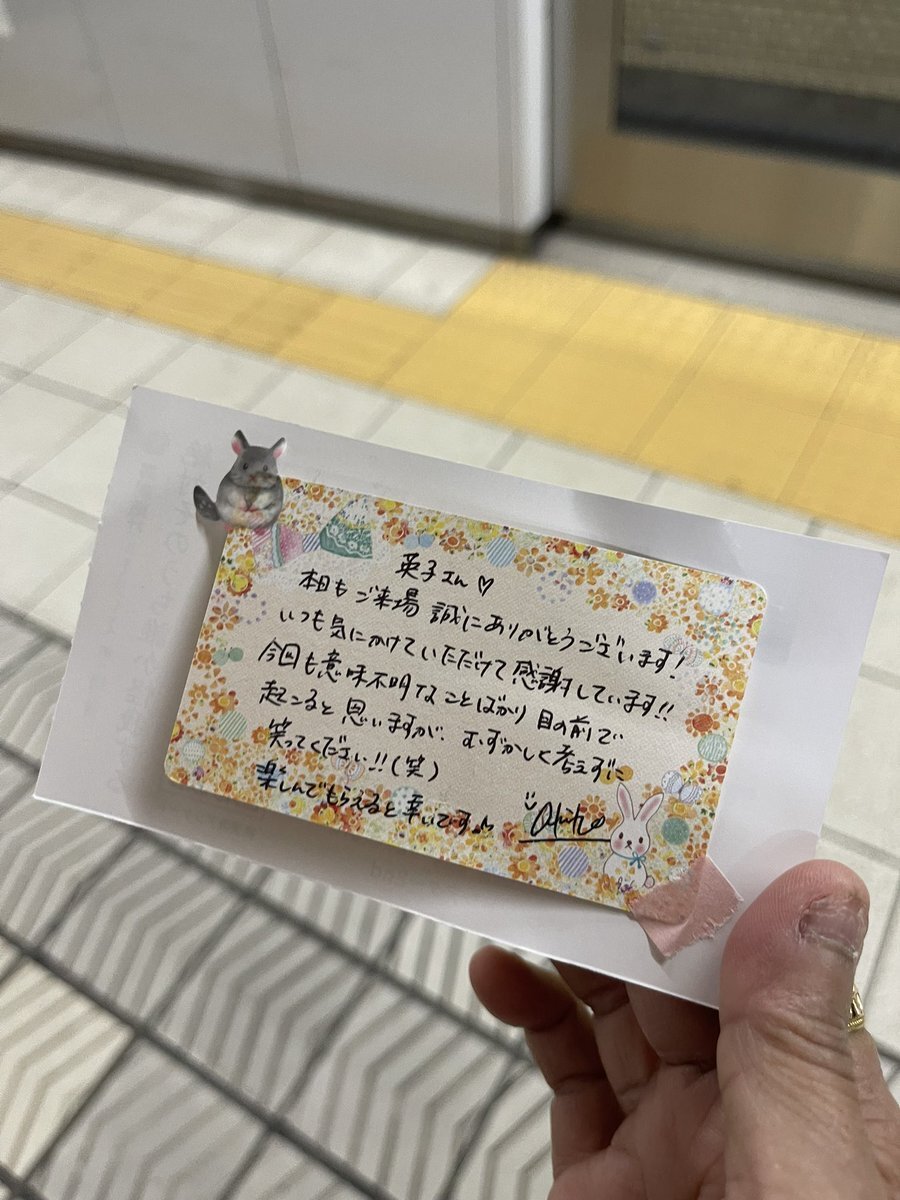 英子さん♡
本日もご来場 誠にありがとうございます!
いつも気にかけていただけて感謝しています!!
今回も意味不明なことばかり目の前で
起こると思いますが、むずかしく考えずに
笑ってください!!(笑)
楽しんでもらえると幸いです♪